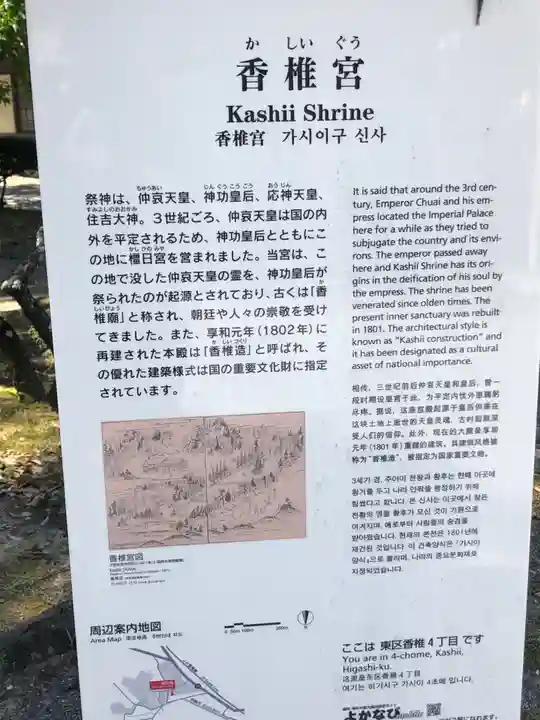 か しい ぐう
香椎宮
Kashii Shrine
香椎宫 가시이구 신사
祭神は、仲哀天皇、神功皇后、応神天皇、
住吉大神。3世紀ごろ、仲哀天皇は国の内
外を平定されるため、神功皇后とともにこ
の地に橿日宮を営まれました。当宮は、こ
の地で没した仲哀天皇の霊を、神功皇后が
祭られたのが起源とされており、古くは「香
椎廟」と称され、朝廷や人々の崇敬を受け
てきました。また、享和元年(1802年)に
再建された本殿は「香椎造」と呼ばれ、そ
の優れた建築様式は国の重要文化財に指定
されています。
It is said that around the 3rd cen-
tury, Emperor Chuai and his em-
press located the Imperial Palace
here for a while as they tried to
subjugate the country and its envi-
rons. The emperor passed away
here and Kashii Shrine has its ori-
gins in the deification of his soul by
the empress. The shrine has been
venerated since olden times. The
present inner sanctuary was rebuilt
in 1801. The architectural style is
known as "Kashii construction" and
it has been designated as a cultural
asset of national importance.
相传，三世纪前后仲哀天皇和皇后，曾一
称为"香椎造"，被指定为国家重要文物。
3세기 경, 주아이 천황과 황후는 한때 이곳에
香椎宮図
周辺案内地図
Area Map
0 50m 100m 200m
ここは 東区香椎4丁目 です
You are in 4-chome, Kashii,
Higashi-ku.
这里是东区香椎4丁目
여기는 히가시구 가시이 4초메 입니다.
よかなび